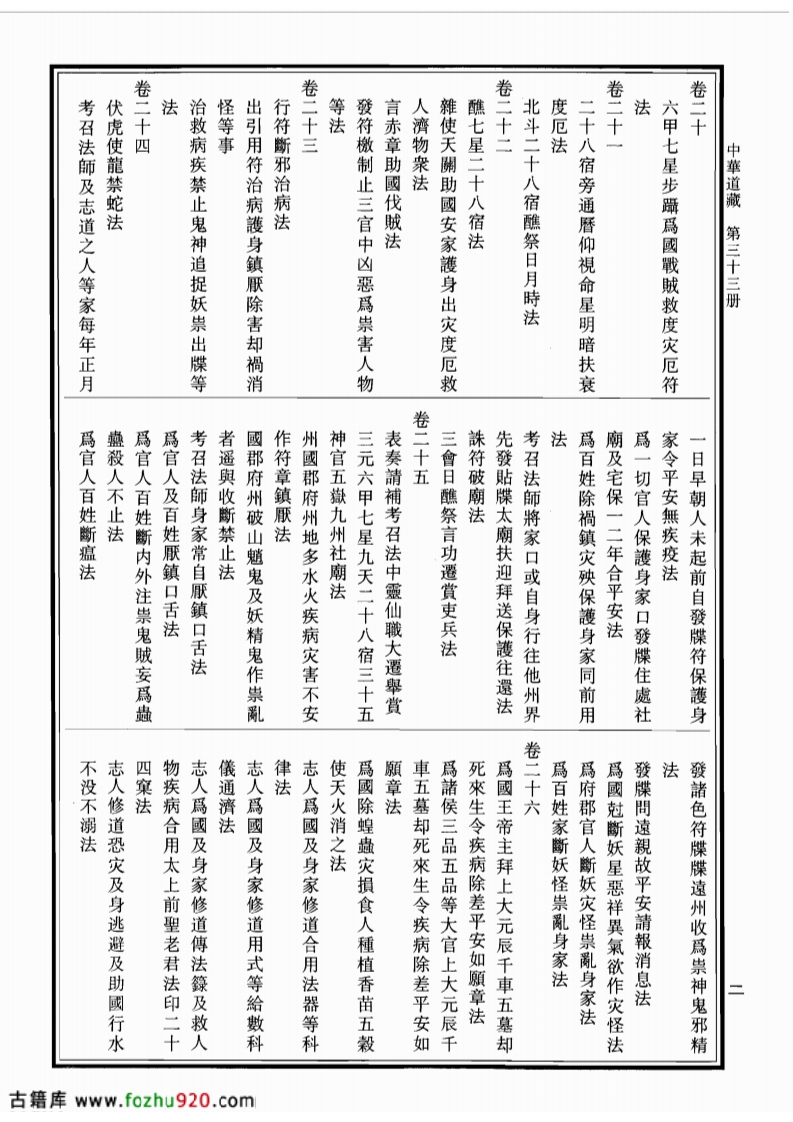 中華道藏　第三十三册
卷二十
六甲七星步躡爲國戰賊救度灾厄符
法
卷二十一
二十八宿旁通曆仰視命星明暗扶衰
度厄法
北斗二十八宿醮祭日月時法
卷二十二
醮七星二十八宿法
雜使天關助國安家護身出灾度厄救
人濟物衆法
言赤章助國伐賊法
發符檄制止三官中凶惡爲祟害人物
等法
卷二十三
行符斷邪治病法
出引用符治病護身鎮厭除害却禍消
怪等事
治救病疾禁止鬼神追捉妖祟出牒等
法
卷二十四
伏虎使龍禁蛇法
考召法師及志道之人等家每年正月
一日早朝人未起前自發牒符保護身
家令平安無疾疫法
爲一切官人保護身家口發牒住處社
廟及宅保一二年合平安法
爲百姓除禍鎮灾殃保護身家同前用
法
考召法師將家口或自身行往他州界
先發貼牒太廟扶迎拜送保護往還法
誅符破廟法
三會日醮祭言功遷賞吏兵法
卷二十五
表奏請補考召法中靈仙職大遷舉賞
三元六甲七星九天二十八宿三十五
神官五嶽九州社廟法
州國郡府州地多水火疾病灾害不安
作符章鎮厭法
國郡府州破山魈鬼及妖精鬼作祟亂
者遥與收斷禁止法
考召法師身家常自厭鎮口舌法
爲官人及百姓厭鎮口舌法
爲官人百姓斷内外注祟鬼賊妄爲蟲
蠱殺人不止法
爲官人百姓斷瘟法
發諸色符牒牒遠州收爲祟神鬼邪精
法
發牒問遠親故平安請報消息法
爲國尅斷妖星惡祥異氣欲作灾怪法
爲府郡官人斷妖灾怪祟亂身家法
爲百姓家斷妖怪祟亂身家法
卷二十六
爲國王帝主拜上大元辰千車五墓却
死來生令疾病除差平安如願章法
爲諸侯三品五品等大官上大元辰千
車五墓却死來生令疾病除差平安如
願章法
爲國除蝗蟲灾損食人種植香苗五穀
使天火消之法
志人爲國及身家修道合用法器等科
律法
志人爲國及身家修道用式等給數科
儀通濟法
志人爲國及身家修道傳法籙及救人
物疾病合用太上前聖老君法印二十
四窠法
志人修道恐灾及身逃避及助國行水
不没不溺法
二
古籍库 www.fozhu920.com